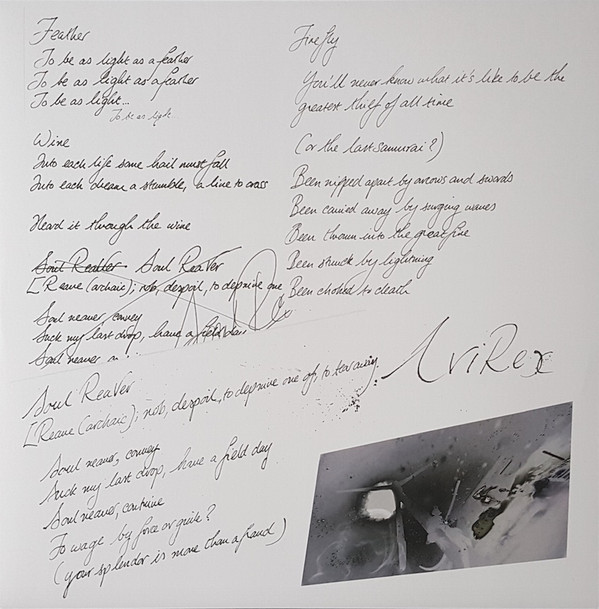 Feather
To be as light as a feather
To be as light as a feather
To be as light...
To be as light
Wine
Into each life some hail must fall
Into each dream a stumble, a line to cross
Heard it through the wine
Soul Reaver Soul ReaVer
[Reave (archaic); rob, despoil, to deprive one
Soul reaver, convey
Suck my last drop, have a field day
Soul reaver
Soul ReaVer
[Reave (archaic); rob, despoil, to deprive one of, to tear away
Soul reaver, convey
Suck my last drop, have a field day
Soul reaver, contrive
To wage by force or guile?
(your splendor is more than a fraud)
Firefly
You'll never know what it's like to be the
greatest thief of all time
(or the last samurai?)
Been ripped apart by arrows and swords
Been carried away by surging waves
Been thrown into the great fire
Been struck by lightning
Been choked to death